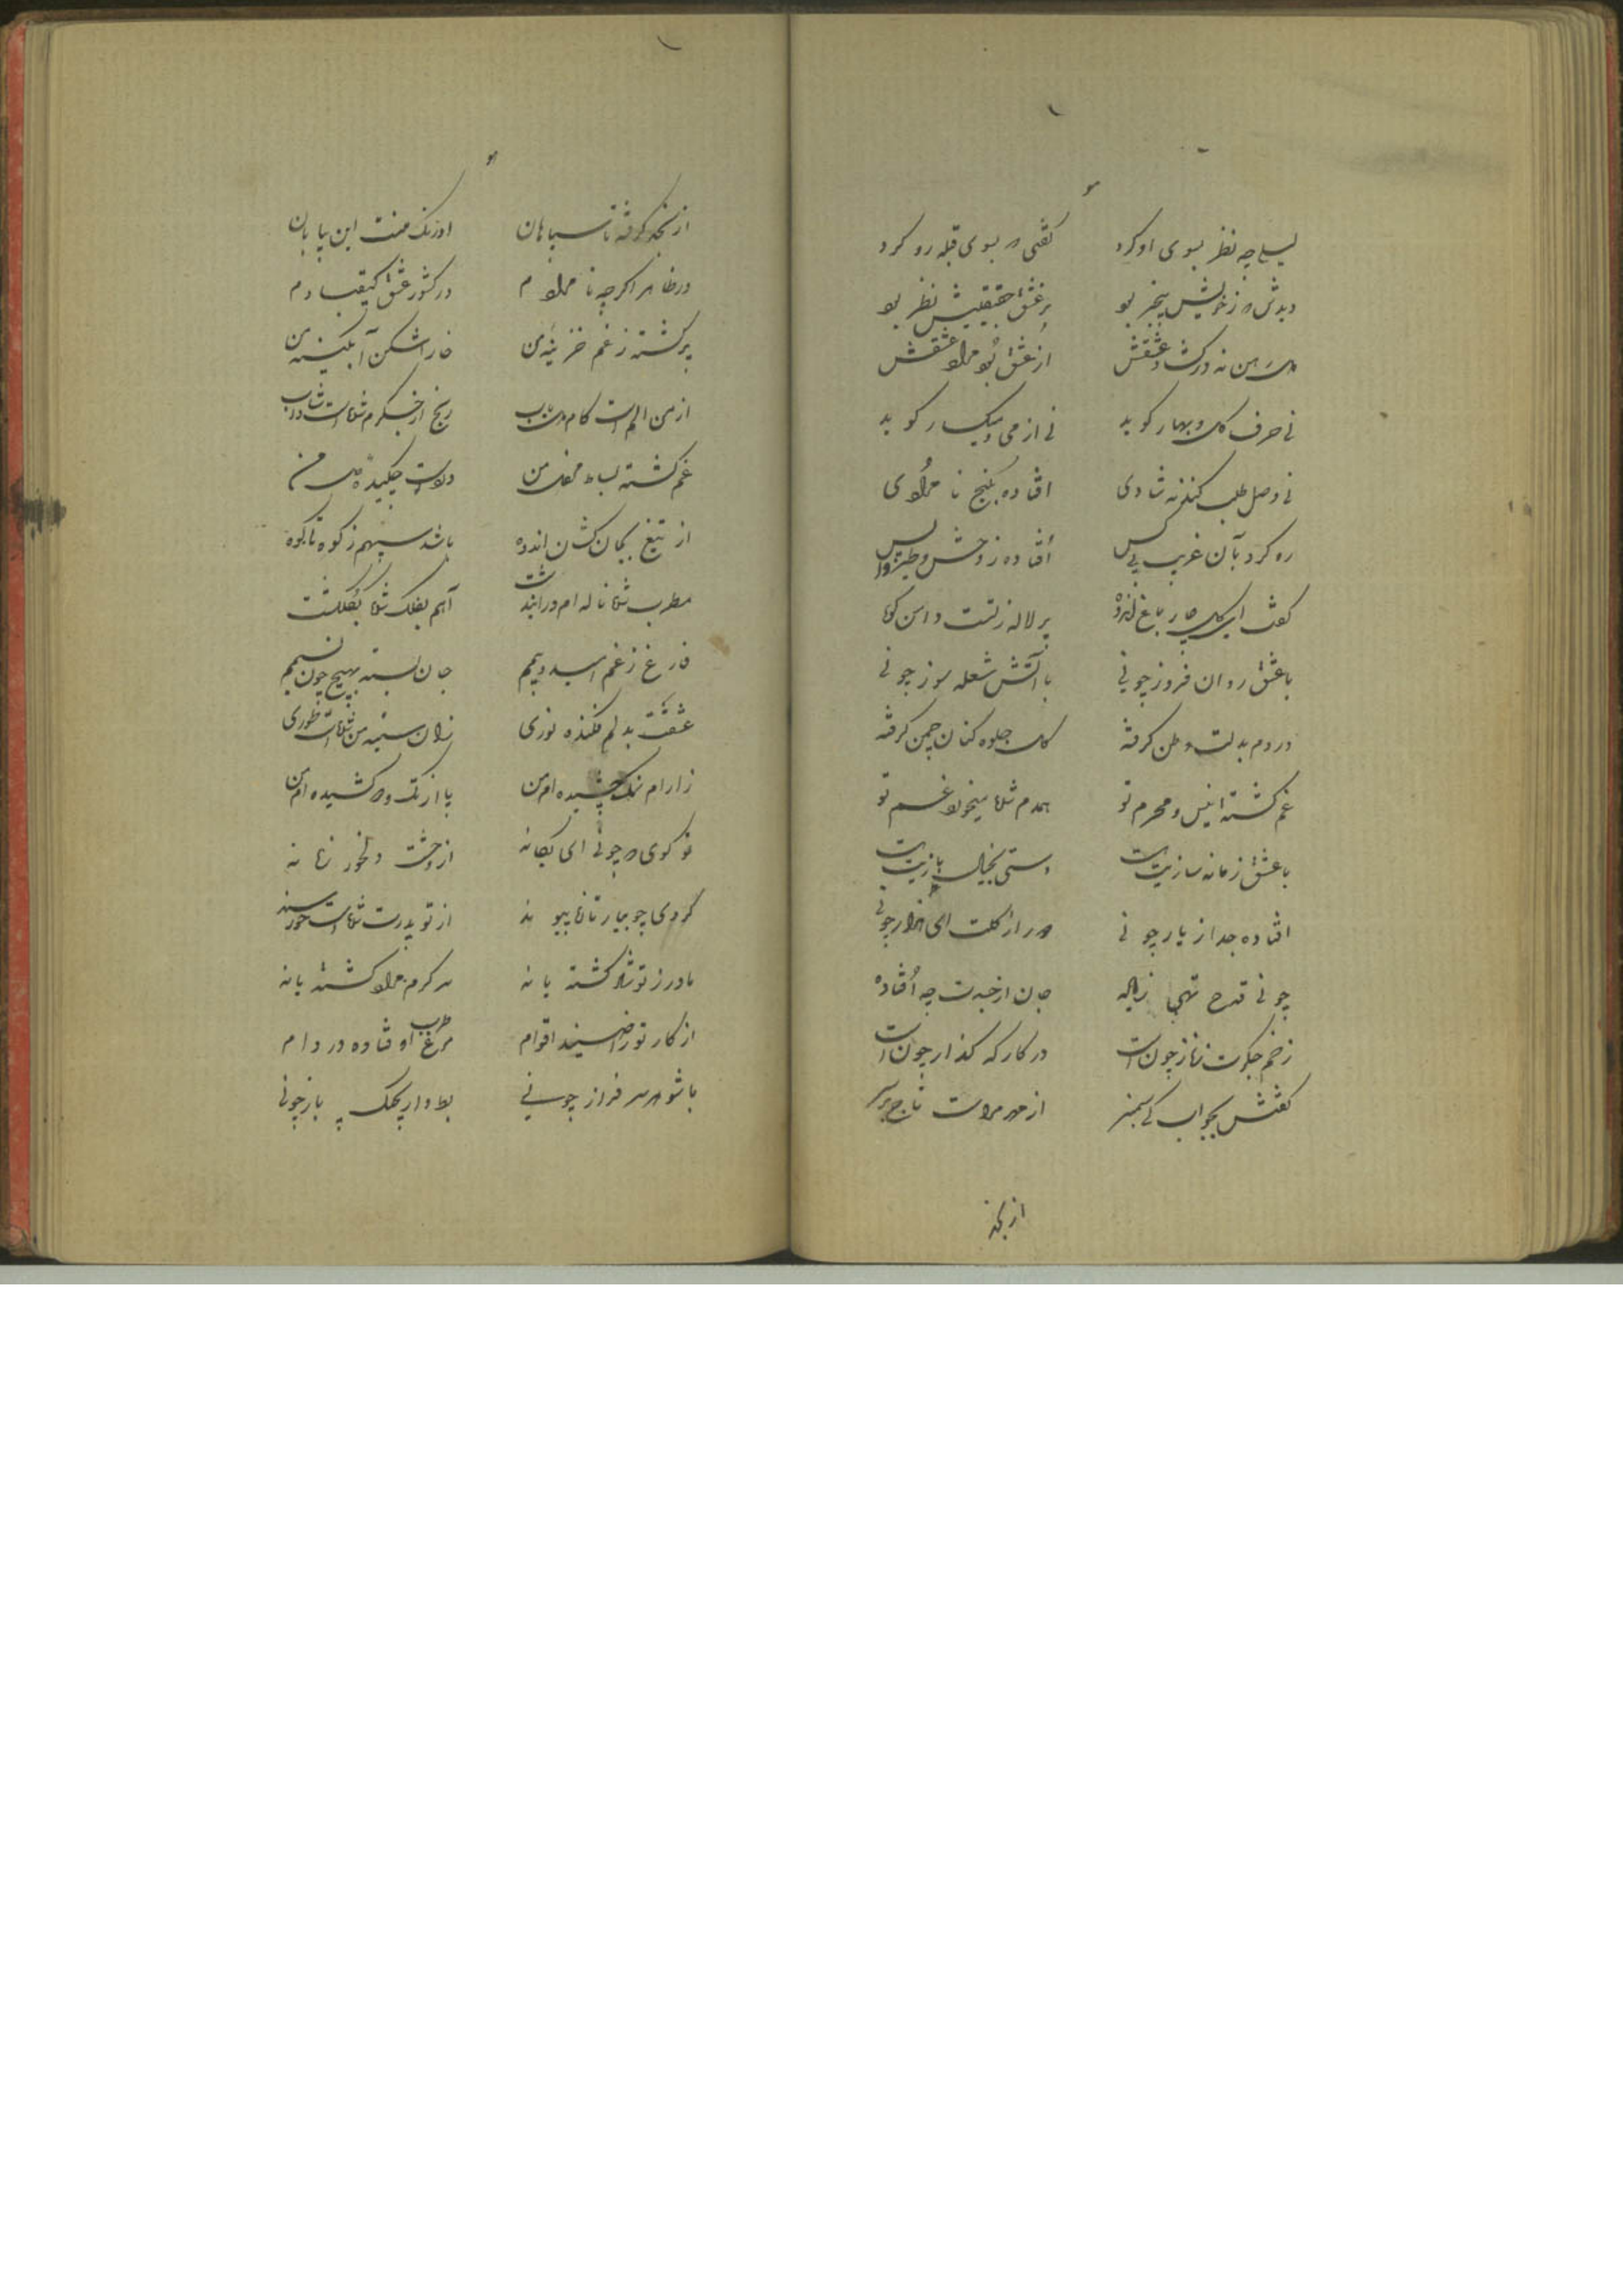 لیلی چه نظر بسوی او کرد کفتی که بسوی قبله رو کرد
دیدش که ز خویش بیخبر بود بر عشق حقیقیش نظر بود
از عشق بود مراد عشقش
نی حرف کل و بهار کوید نی از می و میکسار کوید
نی وصل طلب کند نه شادی افتاده بکنج نامرادی
ره کرد بآن غریب بی کس افتاده ز وحش و طیر واپس
کفت ای کل چار باغ اندوه پر لاله ز تست دامن کوه
با عشق روان فروز چونی با آتش شعله سوز چونی
دردم بدلت وطن کرفته کل جلوه کنان چمن کرفته
غم کشته انیس و محرم تو همدم شده بیخود غم تو
با عشق زمانه سازیت هست دستی بخیال بازیت هست
افتاده جدا ز یار چونی دور از کلت ای هزار چونی
چونی قدح تهی ز باده جان از خبرت چه افتاده
زخم جکرت ز ناز چون است در کار که کذار چون است
کفتش بجواب کی سمنبر از درد مراست تاج بر سر
از نجد
از نجد کرفته تا سپاهان اورنک منست این بیابان
در ظاهر اکر چه نامرادم در کشور عشق کیقبادم
پر کشته ز غم خزینه من خارا شکن آبکینه من
از من الم است کام دریاب رنج از جکرم شده است شاداب
غم کشته بساط محفل من دل من
از تیغ کمان کشان اندوه باشد سپهم ز کوه تا کوه
مطرب شده ناله ام در این دشت آهم بفلک شده بکلکشت
فارغ ز غم امید و بیمم جان بسته بهیچ چون نسیمم
عشقت بدلم فکنده نوری زان سینه من شده است طوری
زارام نمک چشیده ام من پا از تک و دو کشیده ام من
تو کوی که چونی ای یکانه از وحشت و جور زمانه
کردی چو بیار تازه پیوند از تو پدرت شده است خورسند
مادر ز تو شاد کشته یا نه سرکرم مراد کشته یا نه
از کار تو راضیند اقوام مرغ طرب اوفتاده در دام
با شوهر سرفراز چونی بط وار بچنک باز چونی